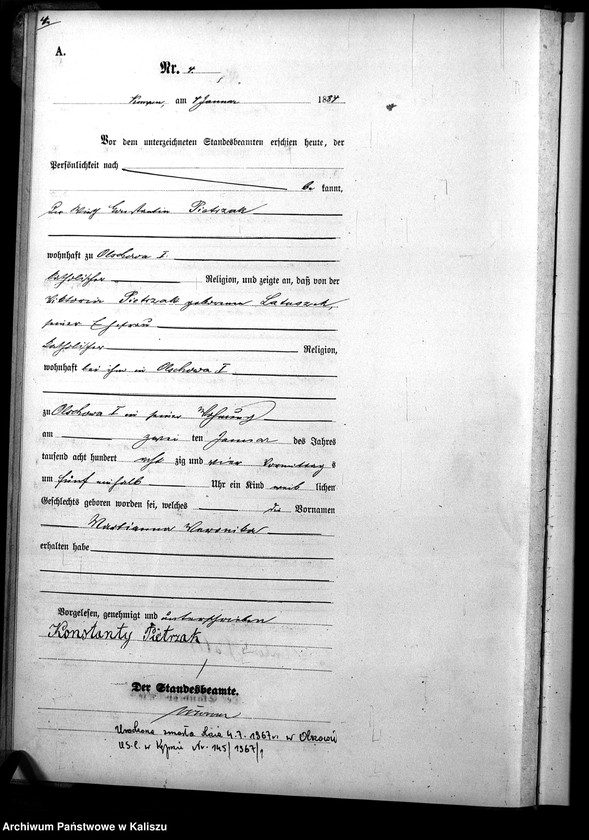 4.
A.
Nr. 4.
Kempen, am 4 Januar 1884
Vor dem unterzeichneten Standesbeamten erschien heute, der
Persönlichkeit nach
be kannt,
der Wirth Constantin Pietrzak
wohnhaft zu Olschowa I.
katholischer Religion, und zeigte an, daß von der
Viktoria Pietrzak geborenen Latuszek,
seiner Ehefrau
katholischer Religion,
wohnhaft bei ihm in Olschowa I
zu Olschowa I in seiner Wohnung
am zwei ten Januar des Jahres
tausend acht hundert acht zig und vier Vormittag s
um fünf einhalb Uhr ein Kind weib lichen
Geschlechts geboren worden sei, welches die Vornamen
Marianna Veronika
erhalten habe
Vorgelesen, genehmigt und unterschrieben
Konstanty Pietrzak
Der Standesbeamte.
Urodzona zmarła dnia 4.7.1967r. w Olszowie
USC. w Kępnie Nr. 145/1967/
Archiwum Państwowe w Kaliszu